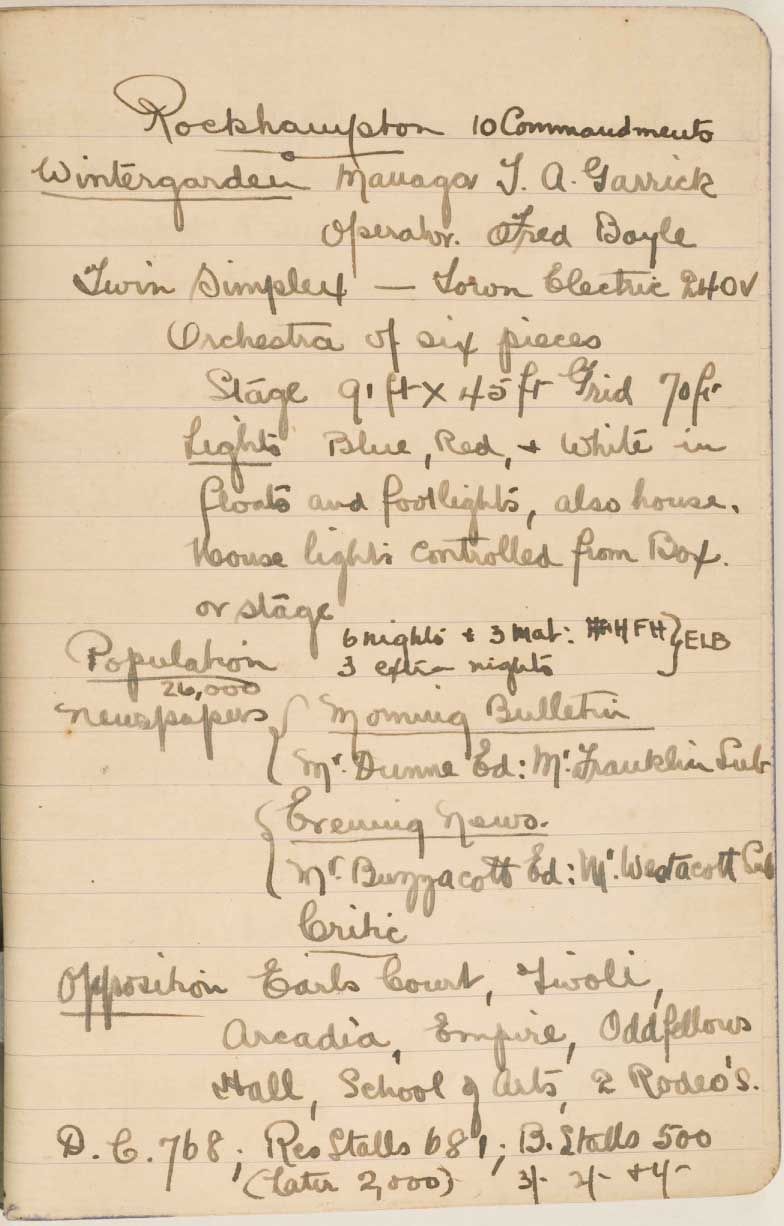 Rockhampton 10 Commandments
Wintergarden Manager T. A. Garrick
Operator. Fred Boyle
Twin Simplex — Town Electric 240V
Orchestra of six pieces
Stage 91 ft x 45 ft Grid 70 ft
Lights Blue, Red, + White in
floats and footlights, also house.
House lights controlled from Box.
or stage
6 nights + 3 mat: HFH } ELB
Population 3 extra nights
26,000
Newspapers { Morning Bulletin
Mr. Dunne Ed: Mr. Franklin Sub
{ Evening News.
Mr. Buzzacott Ed: Mr. Westacott Sub
Critic
Opposition Earls Court, Tivoli,
Arcadia, Empire, Oddfellows
Hall, School of Arts, 2 Rodeo's.
D. C. 768; Res Stalls 681; B. Stalls 500
(Later 2,000) 3/- 2/-